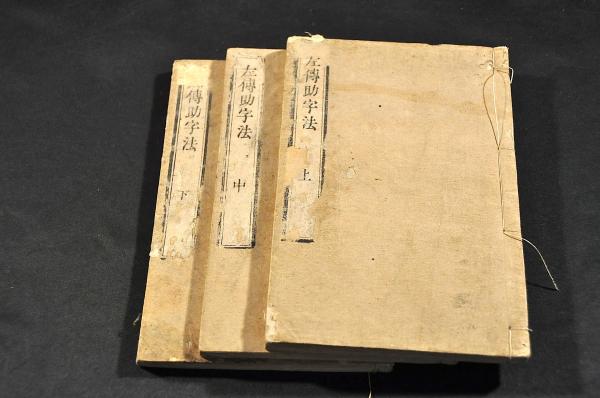 左傳助字法
上
左傳助字法
中
傳助字法
下